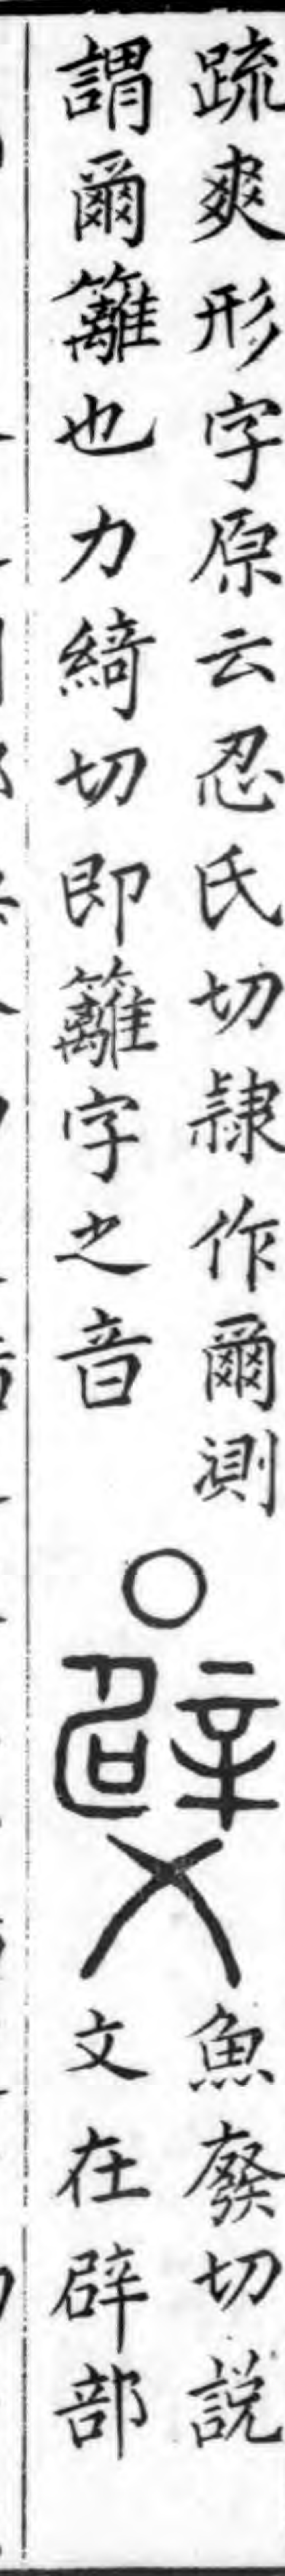 疏爽形字原云忍氏切隷作爾測
謂爾籬也力綺切即籬字之音
○
魚廢切説
文在辟部